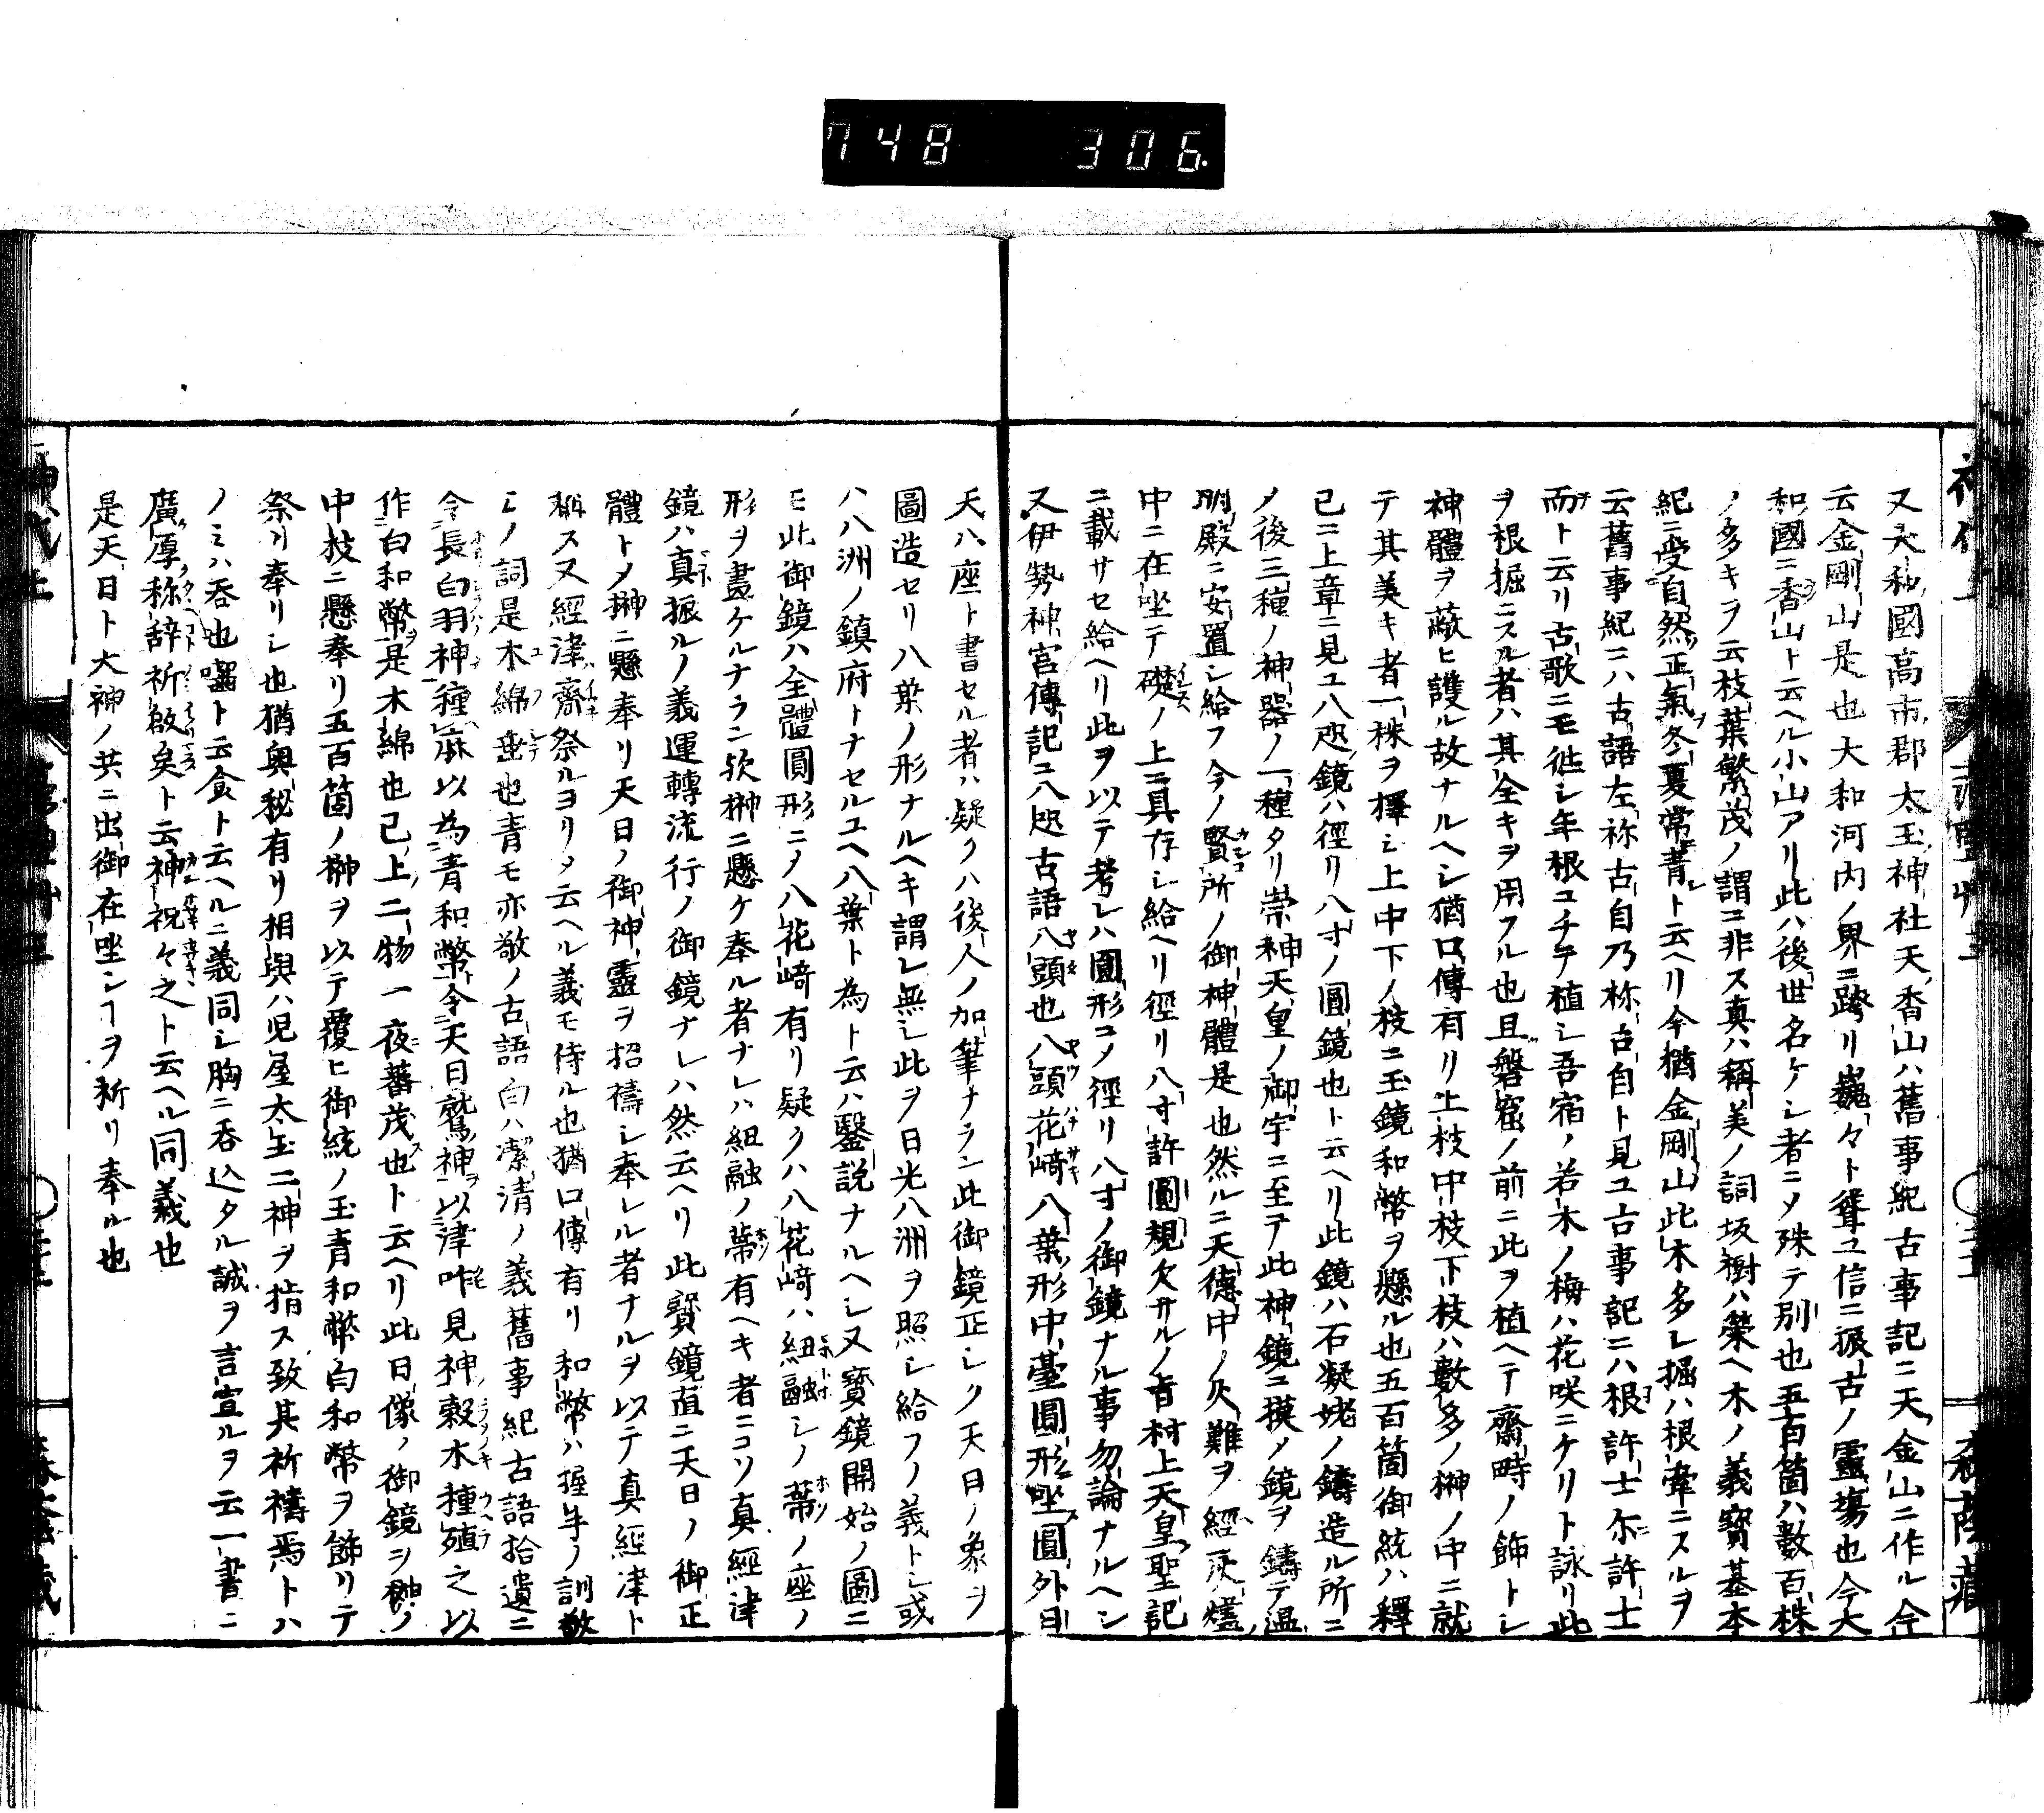 748 306
又大和國高市郡太玉神社天香山ハ舊事紀古事記ニ天金山ニ作ル今
云金剛山是也大和河内ノ界ニ跨リ巍々ト聳ユ信ニ振古ノ靈場也今大
和國ニ香山ト云ヘル小山アリ此ハ後世名ケシ者ニメ殊テ別也五百箇ハ數百株
ノ多キヲ云枝葉繁茂ノ謂ニ非ス真ハ稱美ノ詞坂樹ハ榮ヘ木ノ義寳基本
紀ニ受自然正氣冬夏常青ト云ヘリ今猶金剛山此木多シ掘ハ根牽ニスルヲ
云舊事紀ニハ古語左祢古自乃祢古自ト見ユ古事記ニハ根許士尓許士
而ト云リ古歌ニモ徃シ年根コチテ植シ吾宿ノ若木ノ梅ハ花咲ニケリト詠リ此
ヲ根掘ニスル者ハ其全キヲ用フル也且磐窟ノ前ニ此ヲ植ヘテ齋畤ノ飾トシ
神體ヲ蔽ヒ護ル故ナルヘシ猶口傳有リ上枝中枝下枝ハ數多ノ榊ノ中ニ就
テ其美キ者一株ヲ擇シ上中下ノ枝ニ玉鏡和幣ヲ懸ル也五百箇御統ハ釋
已ニ上章ニ見ユ八咫鏡ハ徑リ八寸ノ圓鏡也ト云ヘリ此鏡ハ石凝姥ノ鑄造ル所ニ
ノ後三種ノ神器ノ一種タリ崇神天皇ノ御宇ニ至テ此神鏡ニ摸メ鏡ヲ鑄テ温
明殿ニ安置シ給フ今ノ賢所ノ御神體是也然ルニ天德中ノ火難ヲ經灰燼
中ニ在坐テ礎ノ上ニ具存シ給ヘリ徑リ八寸許圓規欠サルノ旨村上天皇聖記
ニ載サセ給ヘリ此ヲ以テ考レハ圓形コメ徑リ八寸ノ御鏡ナル事勿論ナルヘシ
又伊勢神宮傳記ニ八咫古語八頭也八頭花﨑八葉形中臺圓形坐圓外日
天八座ト書セル者ハ疑クハ後人ノ加筆ナラン此御鏡正シク天日ノ象ヲ
圖造セリ八葉ノ形ナルヘキ謂レ無シ此ヲ日光八洲ヲ照シ給フノ義トシ或
ハ八洲ノ鎮府トナセルユヘ八葉ト為ト云ハ鑿説ナルヘシ又寳鏡開始ノ圖ニ
モ此御鏡ハ全體圓形ニメ八花﨑有リ疑クハ八花﨑ハ紐融シノ蔕ノ座ノ
形ヲ畫ケルナラン欤榊ニ懸ケ奉ル者ナレハ紐融ノ蔕有ヘキ者ニコソ真經津
鏡ハ真振ルノ義運轉流行ノ御鏡ナレハ然云ヘリ此寳鏡直ニ天日ノ御正
體トメ榊ニ懸奉リ天日ノ御神靈ヲ招禱シ奉レル者ナルヲ以テ真經津ト
稱ス又經津齋祭ルヨリメ云ヘル義モ侍ル也猶口傳有リ和幣ハ握手ノ訓敬
ヒノ詞是木綿垂也青モ亦敬ノ古語白ハ潔清ノ義舊事紀古語拾遺ニ
令長白羽神種麻以為青和幣令天日鷲神以津咋見神穀木種殖之以
作白和幣是木綿也已上二物一夜蕃茂也ト云ヘリ此日像ノ御鏡ヲ榊ノ
中枝ニ懸奉リ五百箇ノ榊ヲ以テ覆ヒ御統ノ玉青和幣白和幣ヲ飾リテ
祭リ奉リシ也猶奥秘有リ相與ハ児屋太玉二神ヲ指ス致其祈禱焉トハ
ノミハ呑也嚙ト云食ト云ヘルニ義同シ胸ニ呑込タル誠ヲ言宣ルヲ云一書ニ
廣厚称辞祈啟矣ト云神祝々之ト云ヘル同義也
是天日ト大神ノ共ニ出御在坐シヿヲ祈リ奉ル也